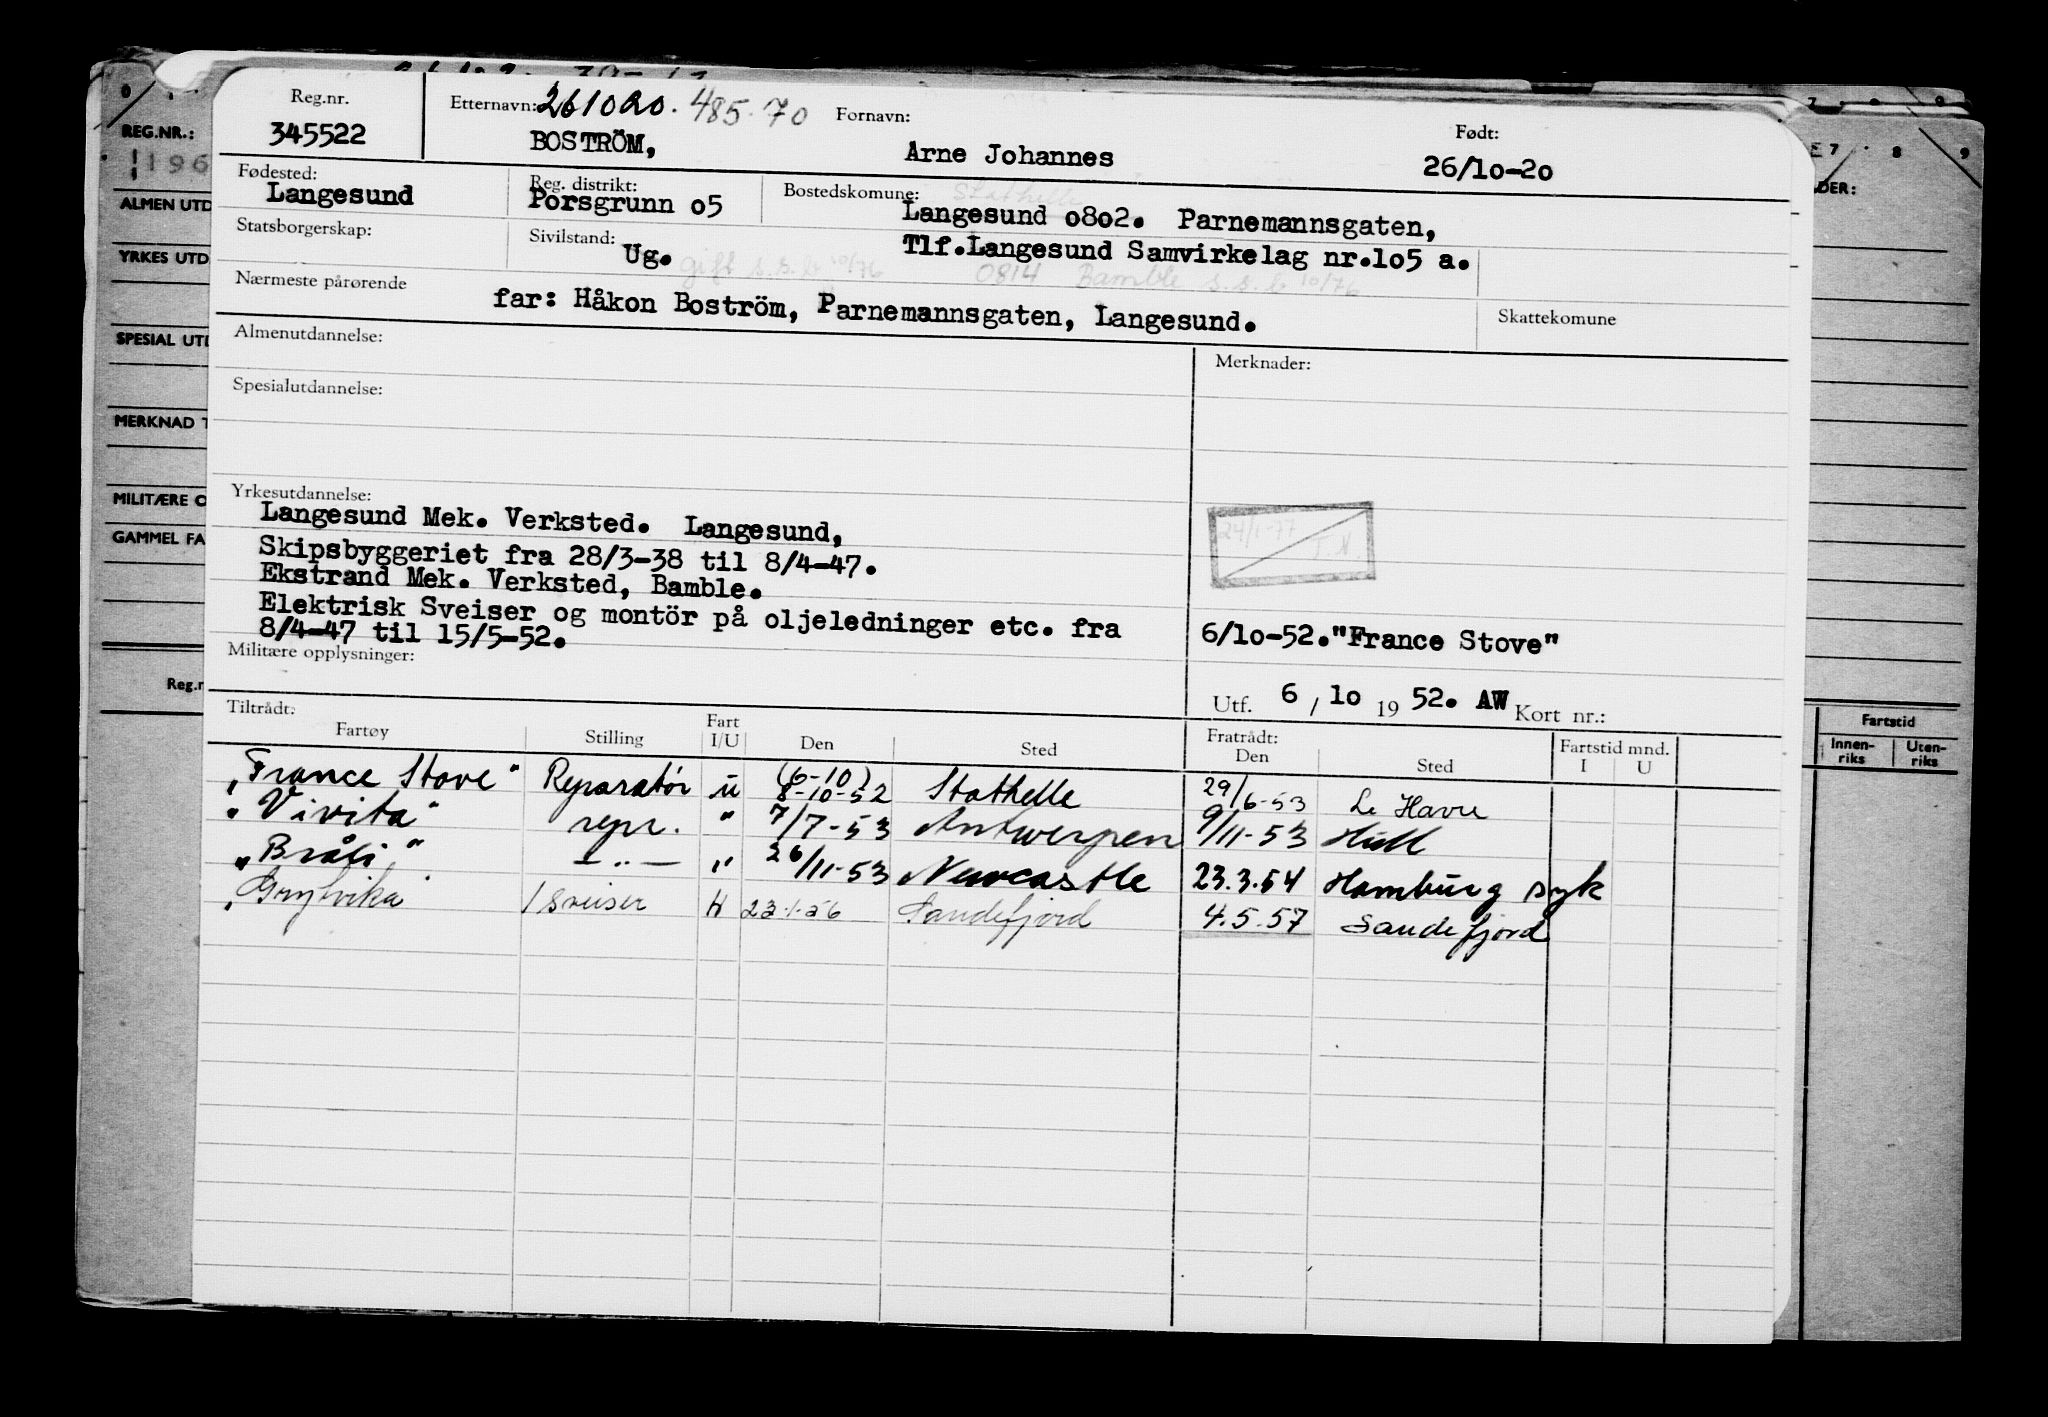 REG.NR.:
196
ALMEN UTD
YRKES UTD
SPESIAL UTD
MERKNAD T
MILITÆRE O
GAMMEL FA
Reg.n
Reg.nr.
345522
Etternavn: 261020. 485.70
BOSTRÖM,
Fornavn:
Arne Johannes
Født:
26/10-20
Fødested:
Langesund
Reg. distrikt:
Porsgrunn 05
Bostedskomune: Stathelle
Langesund 0802. Parnemannsgaten,
Statsborgerskap:
Sivilstand:
Ug. gift s.s.b 10/76
Tlf.Langesund Samvirkelag nr.105 a.
0814 Bamble s.s.b 10/76
Nærmeste pårørende
far: Håkon Boström, Parnemannsgaten, Langesund.
Skattekomune
Almenutdannelse:
Merknader:
Spesialutdannelse:
Yrkesutdannelse:
Langesund Mek. Verksted. Langesund,
Skipsbyggeriet fra 28/3-38 til 8/4-47.
Ekstrand Mek. Verksted, Bamble.
Elektrisk Sveiser og montör på oljeledninger etc. fra
8/4-47 til 15/5-52.
24/1-77
6/10-52."France Stove"
Militære opplysninger:
Utf. 6 / 10 19 52. AW Kort nr.:
Tiltrådt:
Fartøy Stilling Fart I/U Den Sted Fratrådt: Den Sted Fartstid mnd. I U
"France Stove" Reparatør u (6-10) 8-10-52 Stathelle 29/6-53 Le Havre
"Vivita" repr. " 7/7-53 Antwerpen 9/11-53 Hull
"Bråli" -"- " 26/11-53 Newcastle 23.3.54 Hamburg syk
"Grytvika" / Sveiser H 23-1-56 Sandefjord 4.5.57 Sandefjord
7 8 9
DER:
Fartstid
Innen-riks Uten-riks